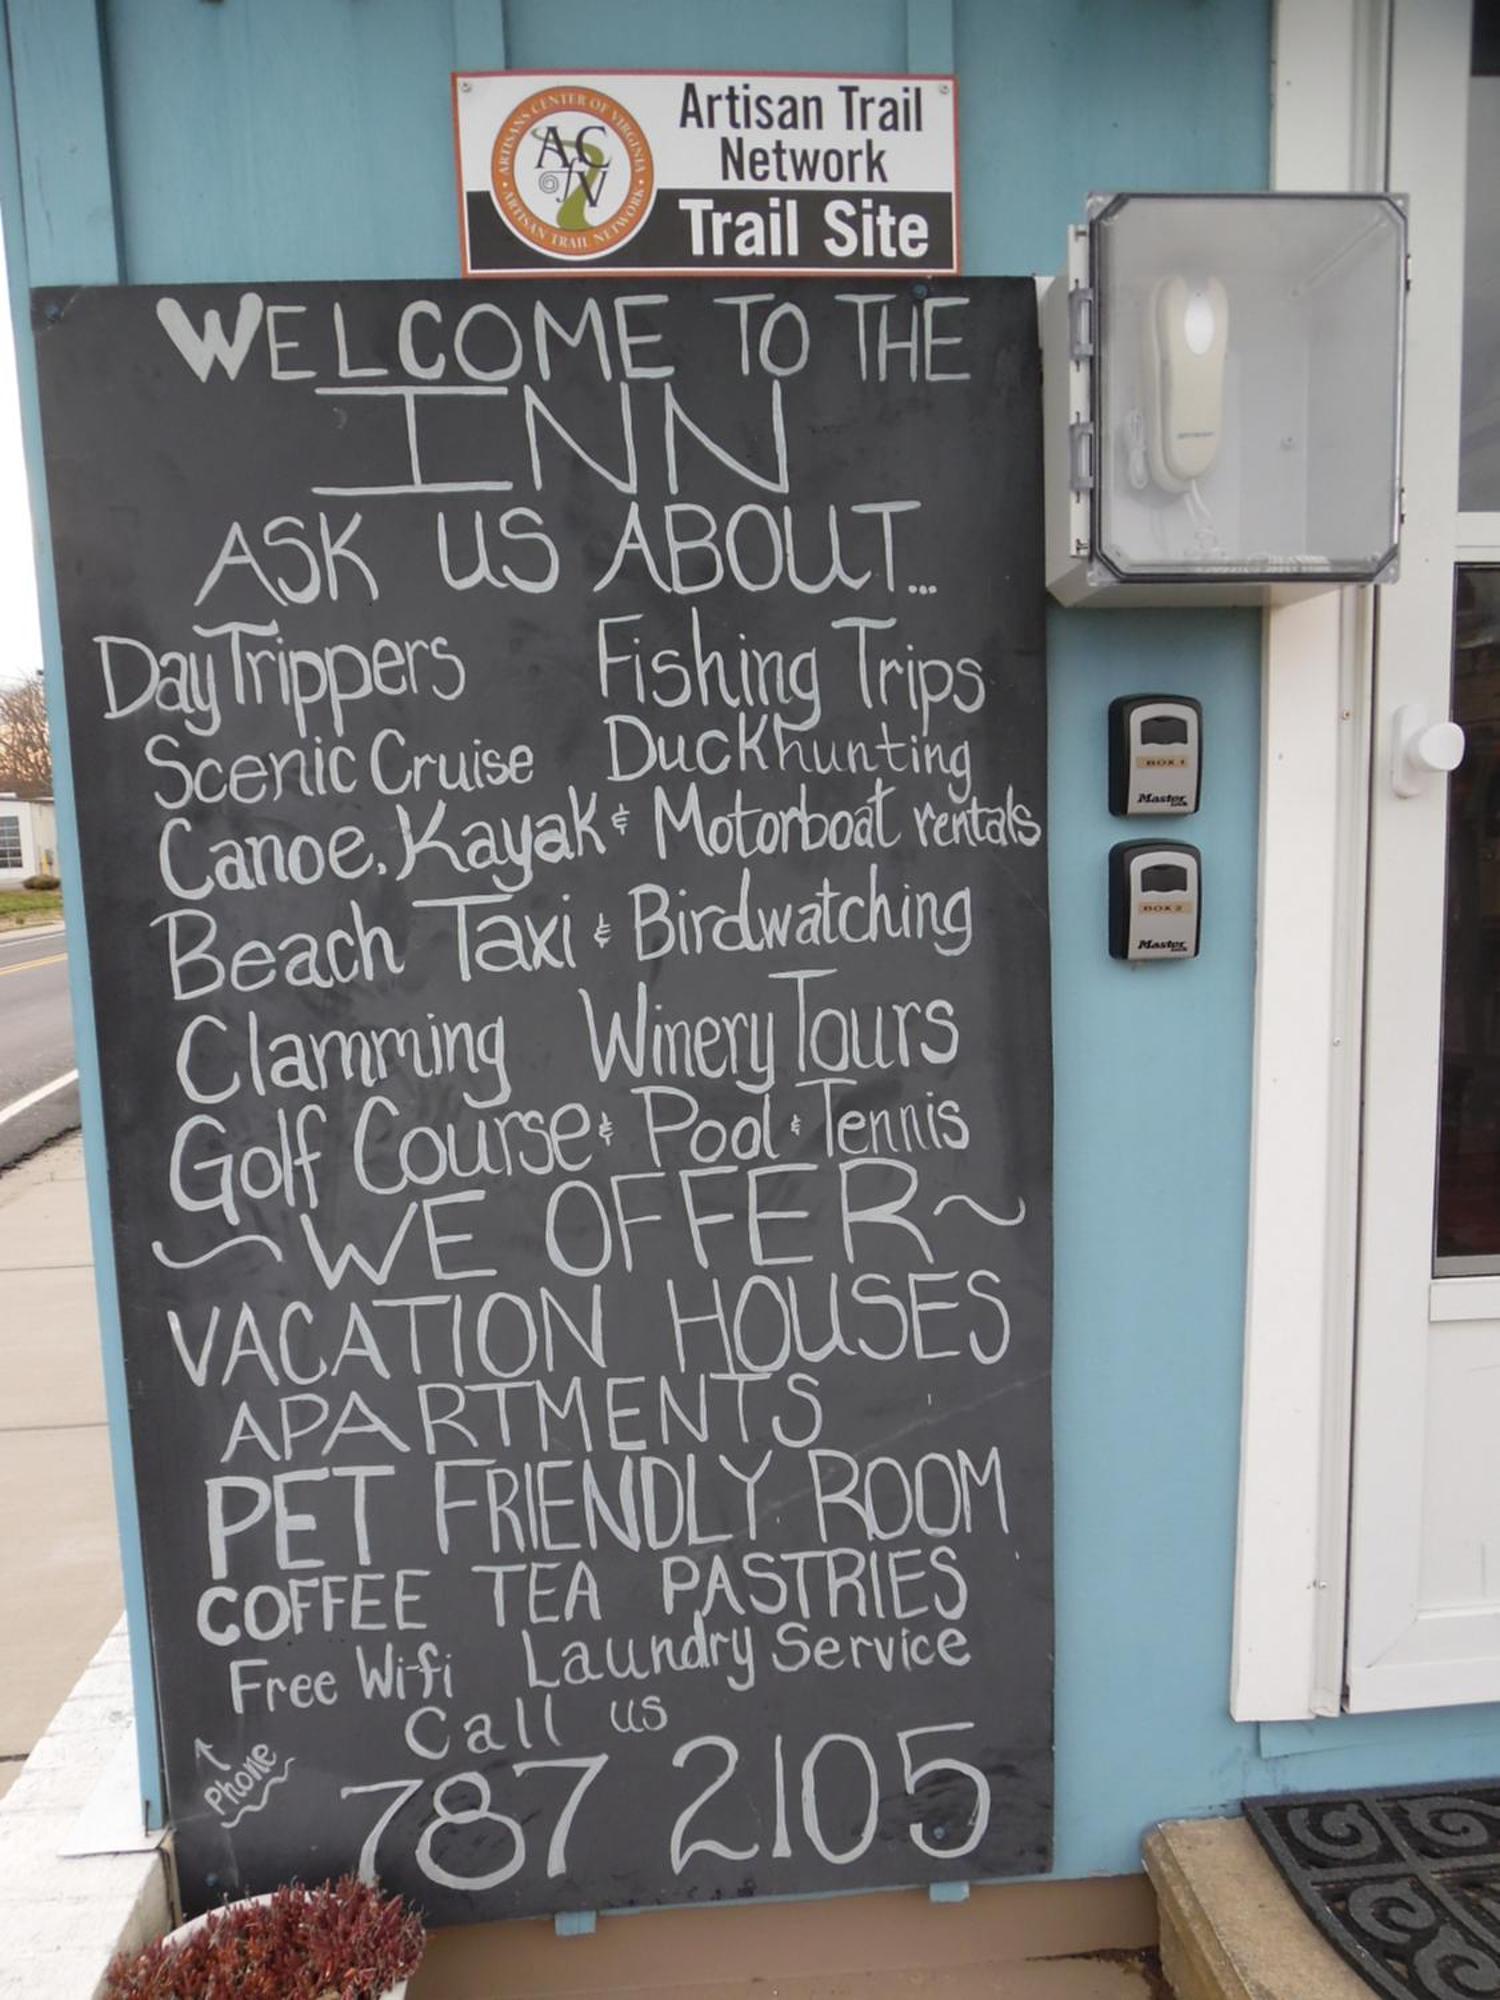 Artisan Trail
Network
Trail Site
ARTISANS CENTER OF VIRGINIA
ARTISAN TRAIL NETWORK
AC
of V
WELCOME TO THE
INN
ASK US ABOUT...
Day Trippers Fishing Trips
Scenic Cruise Duck hunting
Canoe, Kayak & Motorboat rentals
Beach Taxi & Birdwatching
Clamming Winery Tours
Golf Course & Pool & Tennis
~WE OFFER~
VACATION HOUSES
APARTMENTS
PET FRIENDLY ROOM
COFFEE TEA PASTRIES
Free Wi-fi Laundry Service
Call us
Phone
787 2105
BOX 1
Master
Lock
BOX 2
Master
Lock